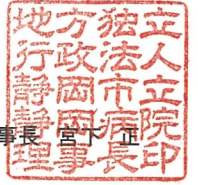 地方独立
行政法人
静岡市立
静岡病院
理事長印
事長 宮下 正